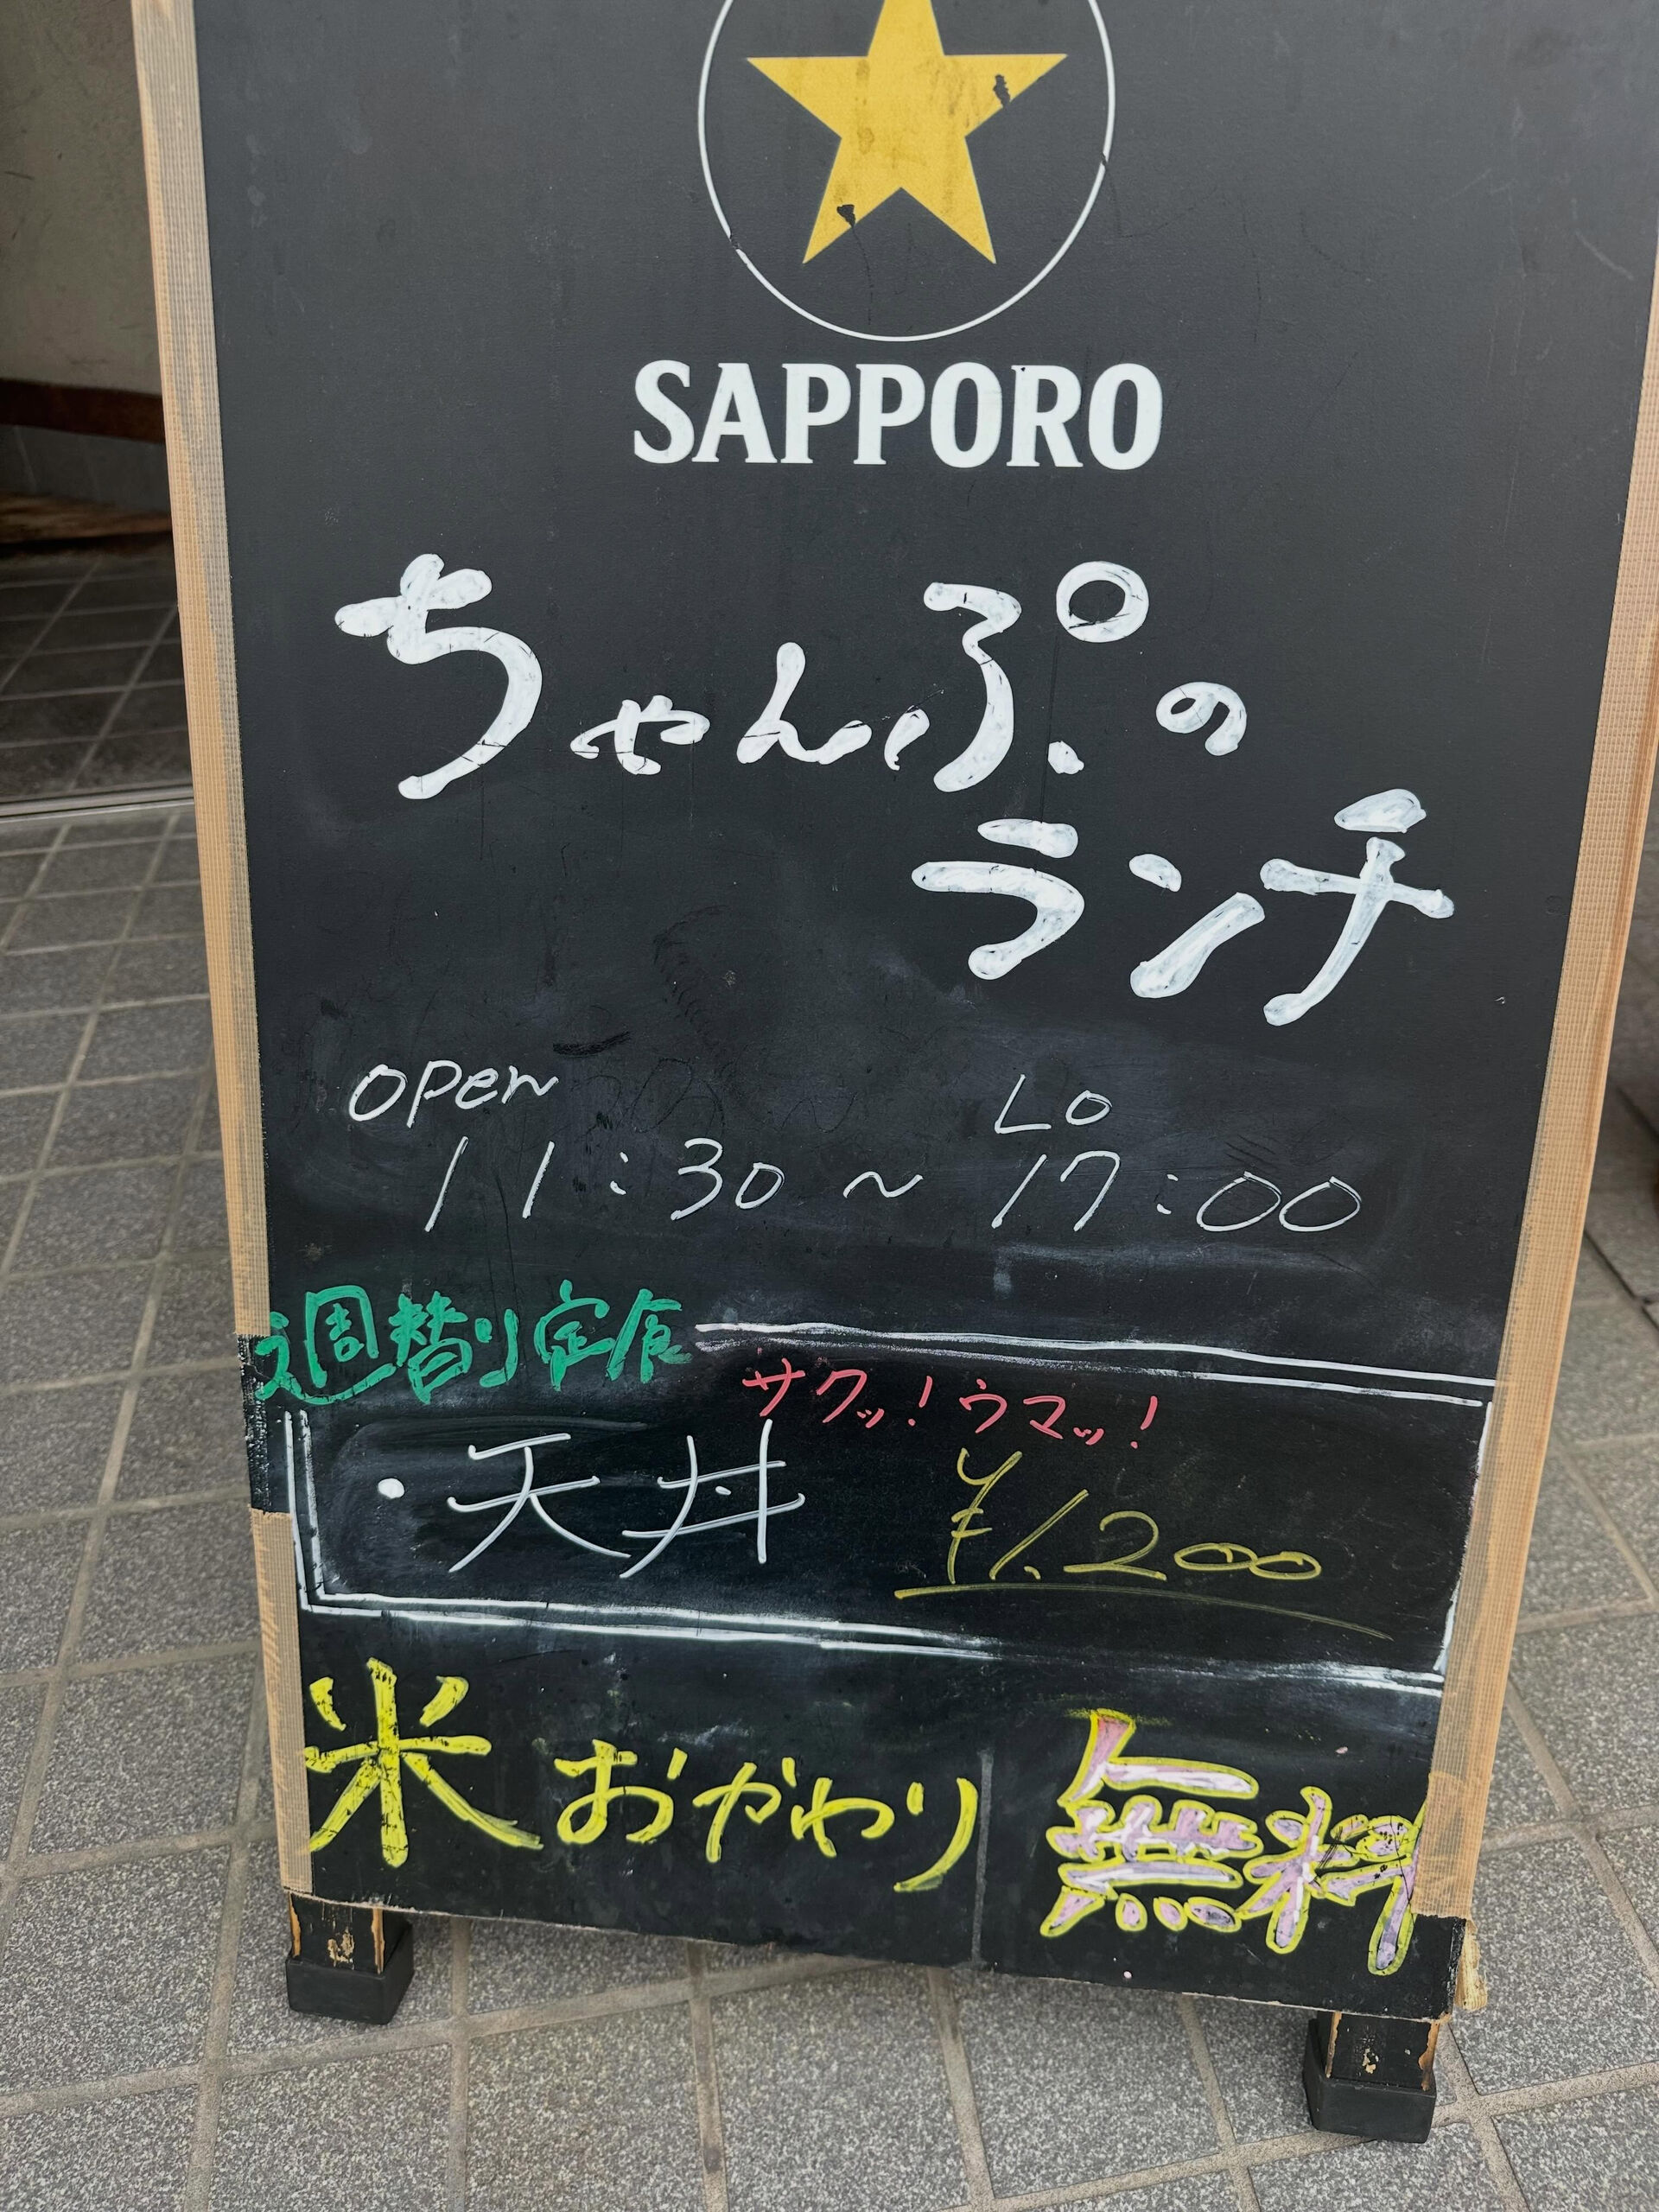 SAPPORO
ちゃんぷの
ランチ
open LO
11:30～17:00
週替り定食
サクッ!ウマッ!
・天丼 ¥1.200
米おかわり 無料